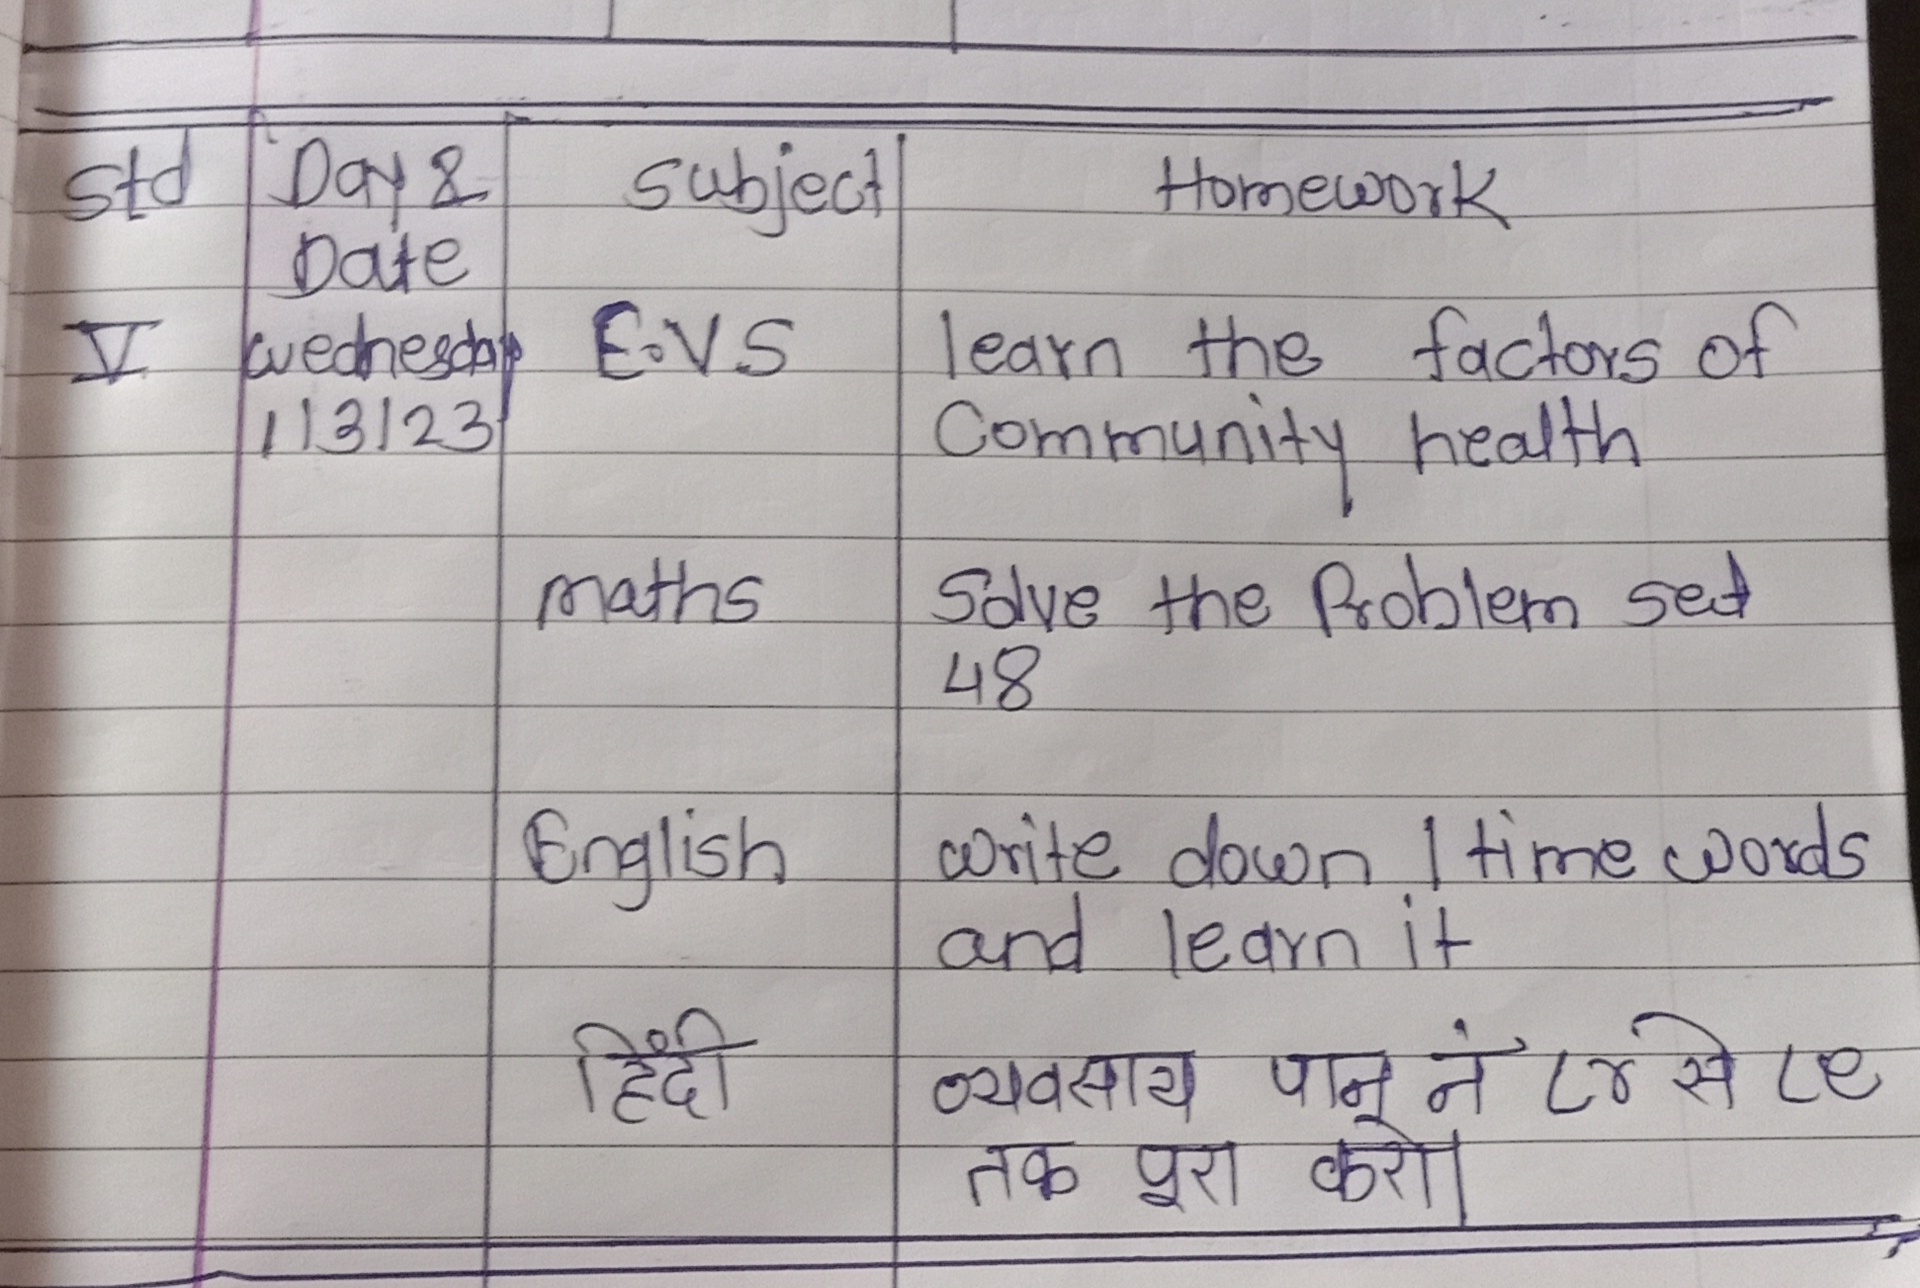 Std Day & Subject Homework
Date
V Wednesday E.V.S learn the factors of
1/3/23 Community health
maths Solve the Problem set
48
English write down 1 time words
and learn it
हिंदी व्यवसाय पान नं ८४ से ८९
तक पूरा करो।